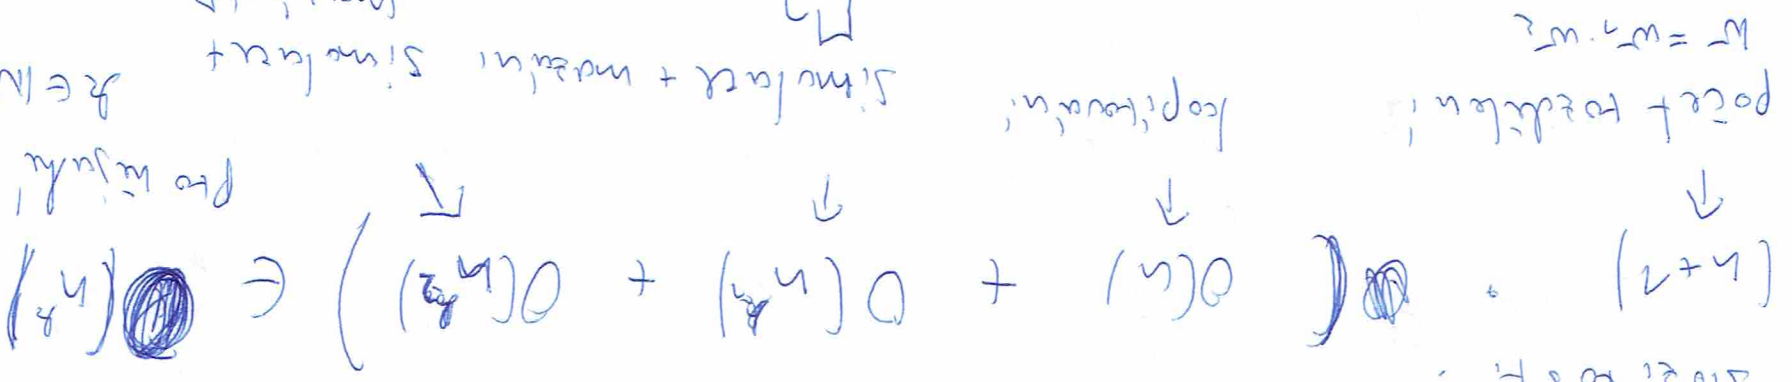 (n+1) · ( O(n) + O(n^k₁) + O(n^k₂) ) ∈ O(n^k)
↑ ↑ ↑ ↑ pro nějaký
počet rozdělení kopírování simulace + mazání simulace + k ∈ ℕ
w = w₁.w₂